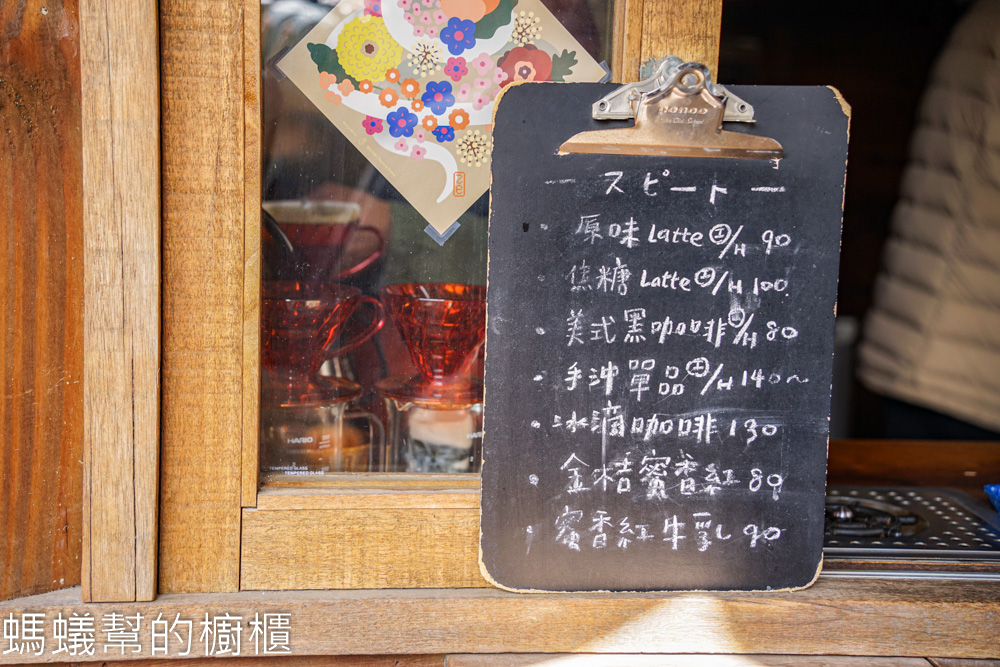 一 スピート 一
· 原味 Latte Ⓘ/H 90
· 焦糖 Latte Ⓘ/H 100
· 美式黑咖啡 Ⓘ/H 80
· 手沖單品 Ⓘ/H 140~
· 冰滴咖啡 130
· 金桔蜜香紅 80
· 蜜香紅牛乳 90
HARIO
TEMPERED GLASS
TEMPERED GLASS
螞蟻幫的櫥櫃